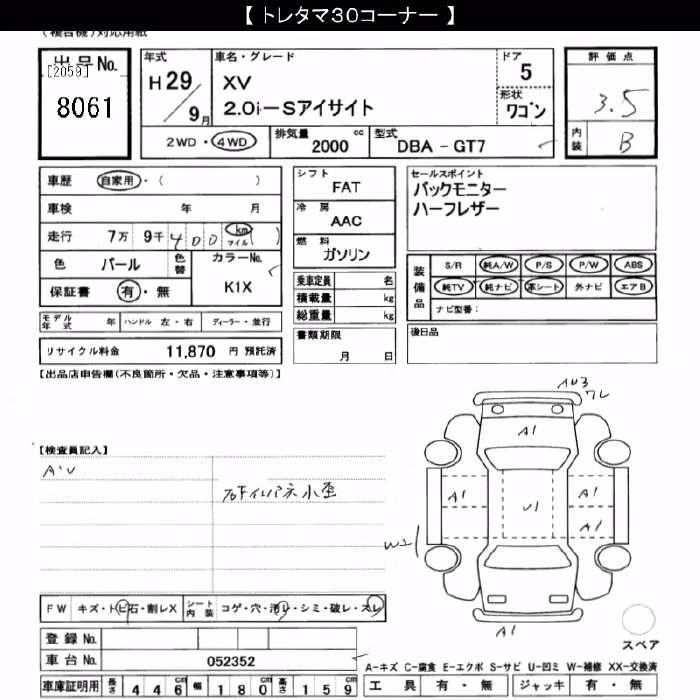 【 トレタマ30コーナー 】
(複合機)対応用紙
出品No.
[2059]
8061
年式
H 29 / 9 月
車名・グレード
XV
2.0i-Sアイサイト
ドア
5
形状
ワゴン
評価点
3.5
内装
B
2WD・4WD
排気量 2000 cc
型式 DBA - GT7
車歴 自家用・( )
車検 年 月
走行 7万 9千 4 0 0 km マイル ( )
色 パール 色替 カラーNo.
K1X
保証書 有・無
シフト
FAT
冷房
AAC
燃料
ガソリン
乗車定員 名
積載量 kg
総重量 kg
セールスポイント
バックモニター
ハーフレザー
装備品
S/R 純A/W P/S P/W ABS
純TV 純ナビ 革シート 外ナビ エアB
ナビ型番:
モデル年式 年 ハンドル 左・右 ディーラー・並行
リサイクル料金 11,870 円 預託済
書類期限
月 日
後日品
【出品店申告欄(不良箇所・欠品・注意事項等)】
【検査員記入】
AU3
ワレ
A1
A1
U1
A1
A1
W2
A1
スペア
FW キズ・トビ石・割レX シート内装 コゲ・穴・汚レ・シミ・破レ・スレ
登録No.
車台No. 052352
車庫証明用 長さ 446 cm 幅 180 cm 高さ 159 cm
A-キズ C-腐食 E-エクボ S-サビ U-凹ミ W-補修 XX-交換済
工具 有・無 ジャッキ 有・無